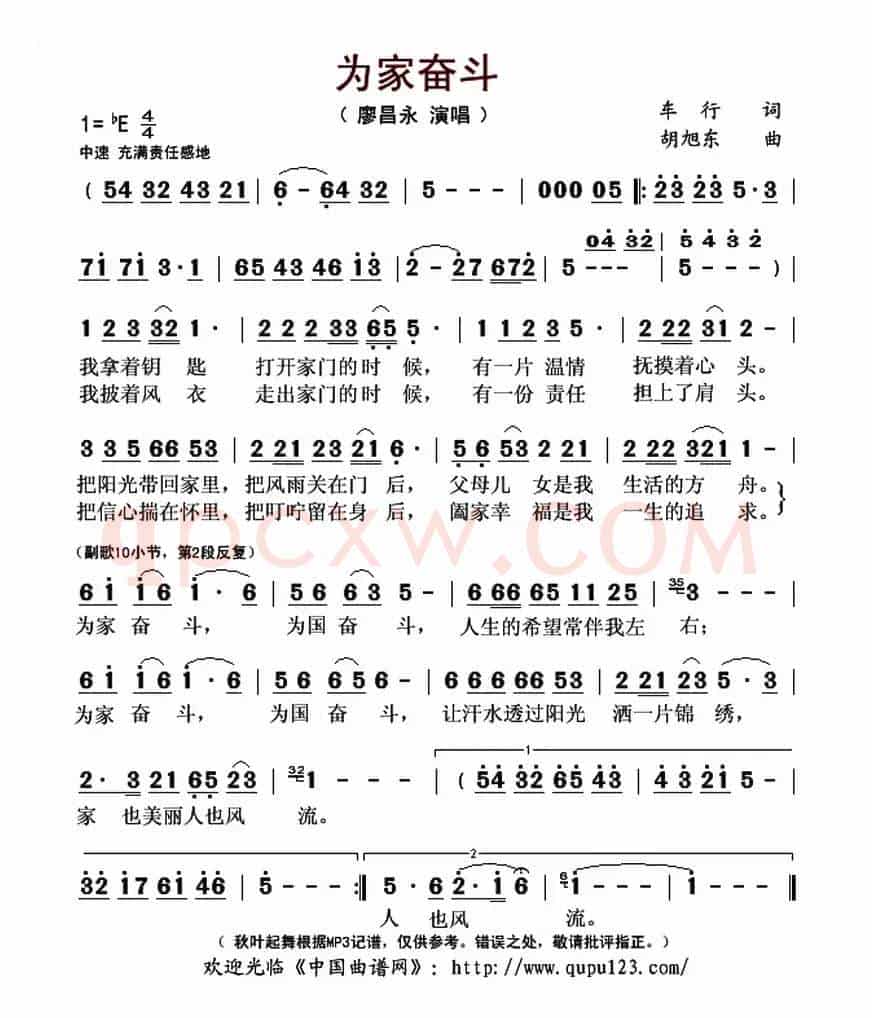 为家奋斗
（ 廖昌永 演唱 ）
车 行 词
1= ♭E 4/4
胡旭东 曲
中速 充满责任感地
( 54 32 43 21 | 6 - 64 32 | 5 - - - | 000 05 ‖: 23 23 5·3 |
04 32 | 5 4 3 2
71 71 3·1 | 65 43 46 13 | 2 - 27 672 | 5 - - - | 5 - - - ) |
1 2 3 32 1· | 2 2 2 33 65 5· | 1 1 2 3 5 | 2 22 31 2 - |
我拿着钥 匙 打开家门的时 候， 有一片 温情 抚摸着心 头。
我披着风 衣 走出家门的时 候， 有一份 责任 担上了肩 头。
3 3 5 66 53 | 2 21 23 21 6· | 5 6 53 2 21 | 2 22 321 1 - |
把阳光带回家里，把风雨关在门 后， 父母儿 女是我 生活的方 舟。
把信心揣在怀里，把叮咛留在身 后， 阖家幸 福是我 一生的追 求。
（副歌10小节，第2段反复）
6 1 16 1· 6 | 56 63 5 - | 6 66 65 11 25 | 35 3 - - - |
为家 奋 斗， 为国 奋 斗， 人生的希望常伴我左 右；
6 1 16 1·6 | 56 56 6 - | 66 66 66 53 | 2 21 23 5·3 |
为家 奋 斗， 为国 奋 斗， 让汗水透过阳光 洒一片锦 绣，
1
2· 3 21 65 23 | 32 1 - - - | ( 54 32 65 43 | 4 3 21 5 - |
家 也美丽人也风 流。
2
32 17 61 46 | 5 - - - :‖ 5· 6 2·1 6 | 6 1 - - - | 1 - - - ‖
人 也风 流。
（ 秋叶起舞根据MP3记谱，仅供参考。错误之处，敬请批评指正。）
欢迎光临《中国曲谱网》：http://www.qupu123.com/
qpcxw.COM